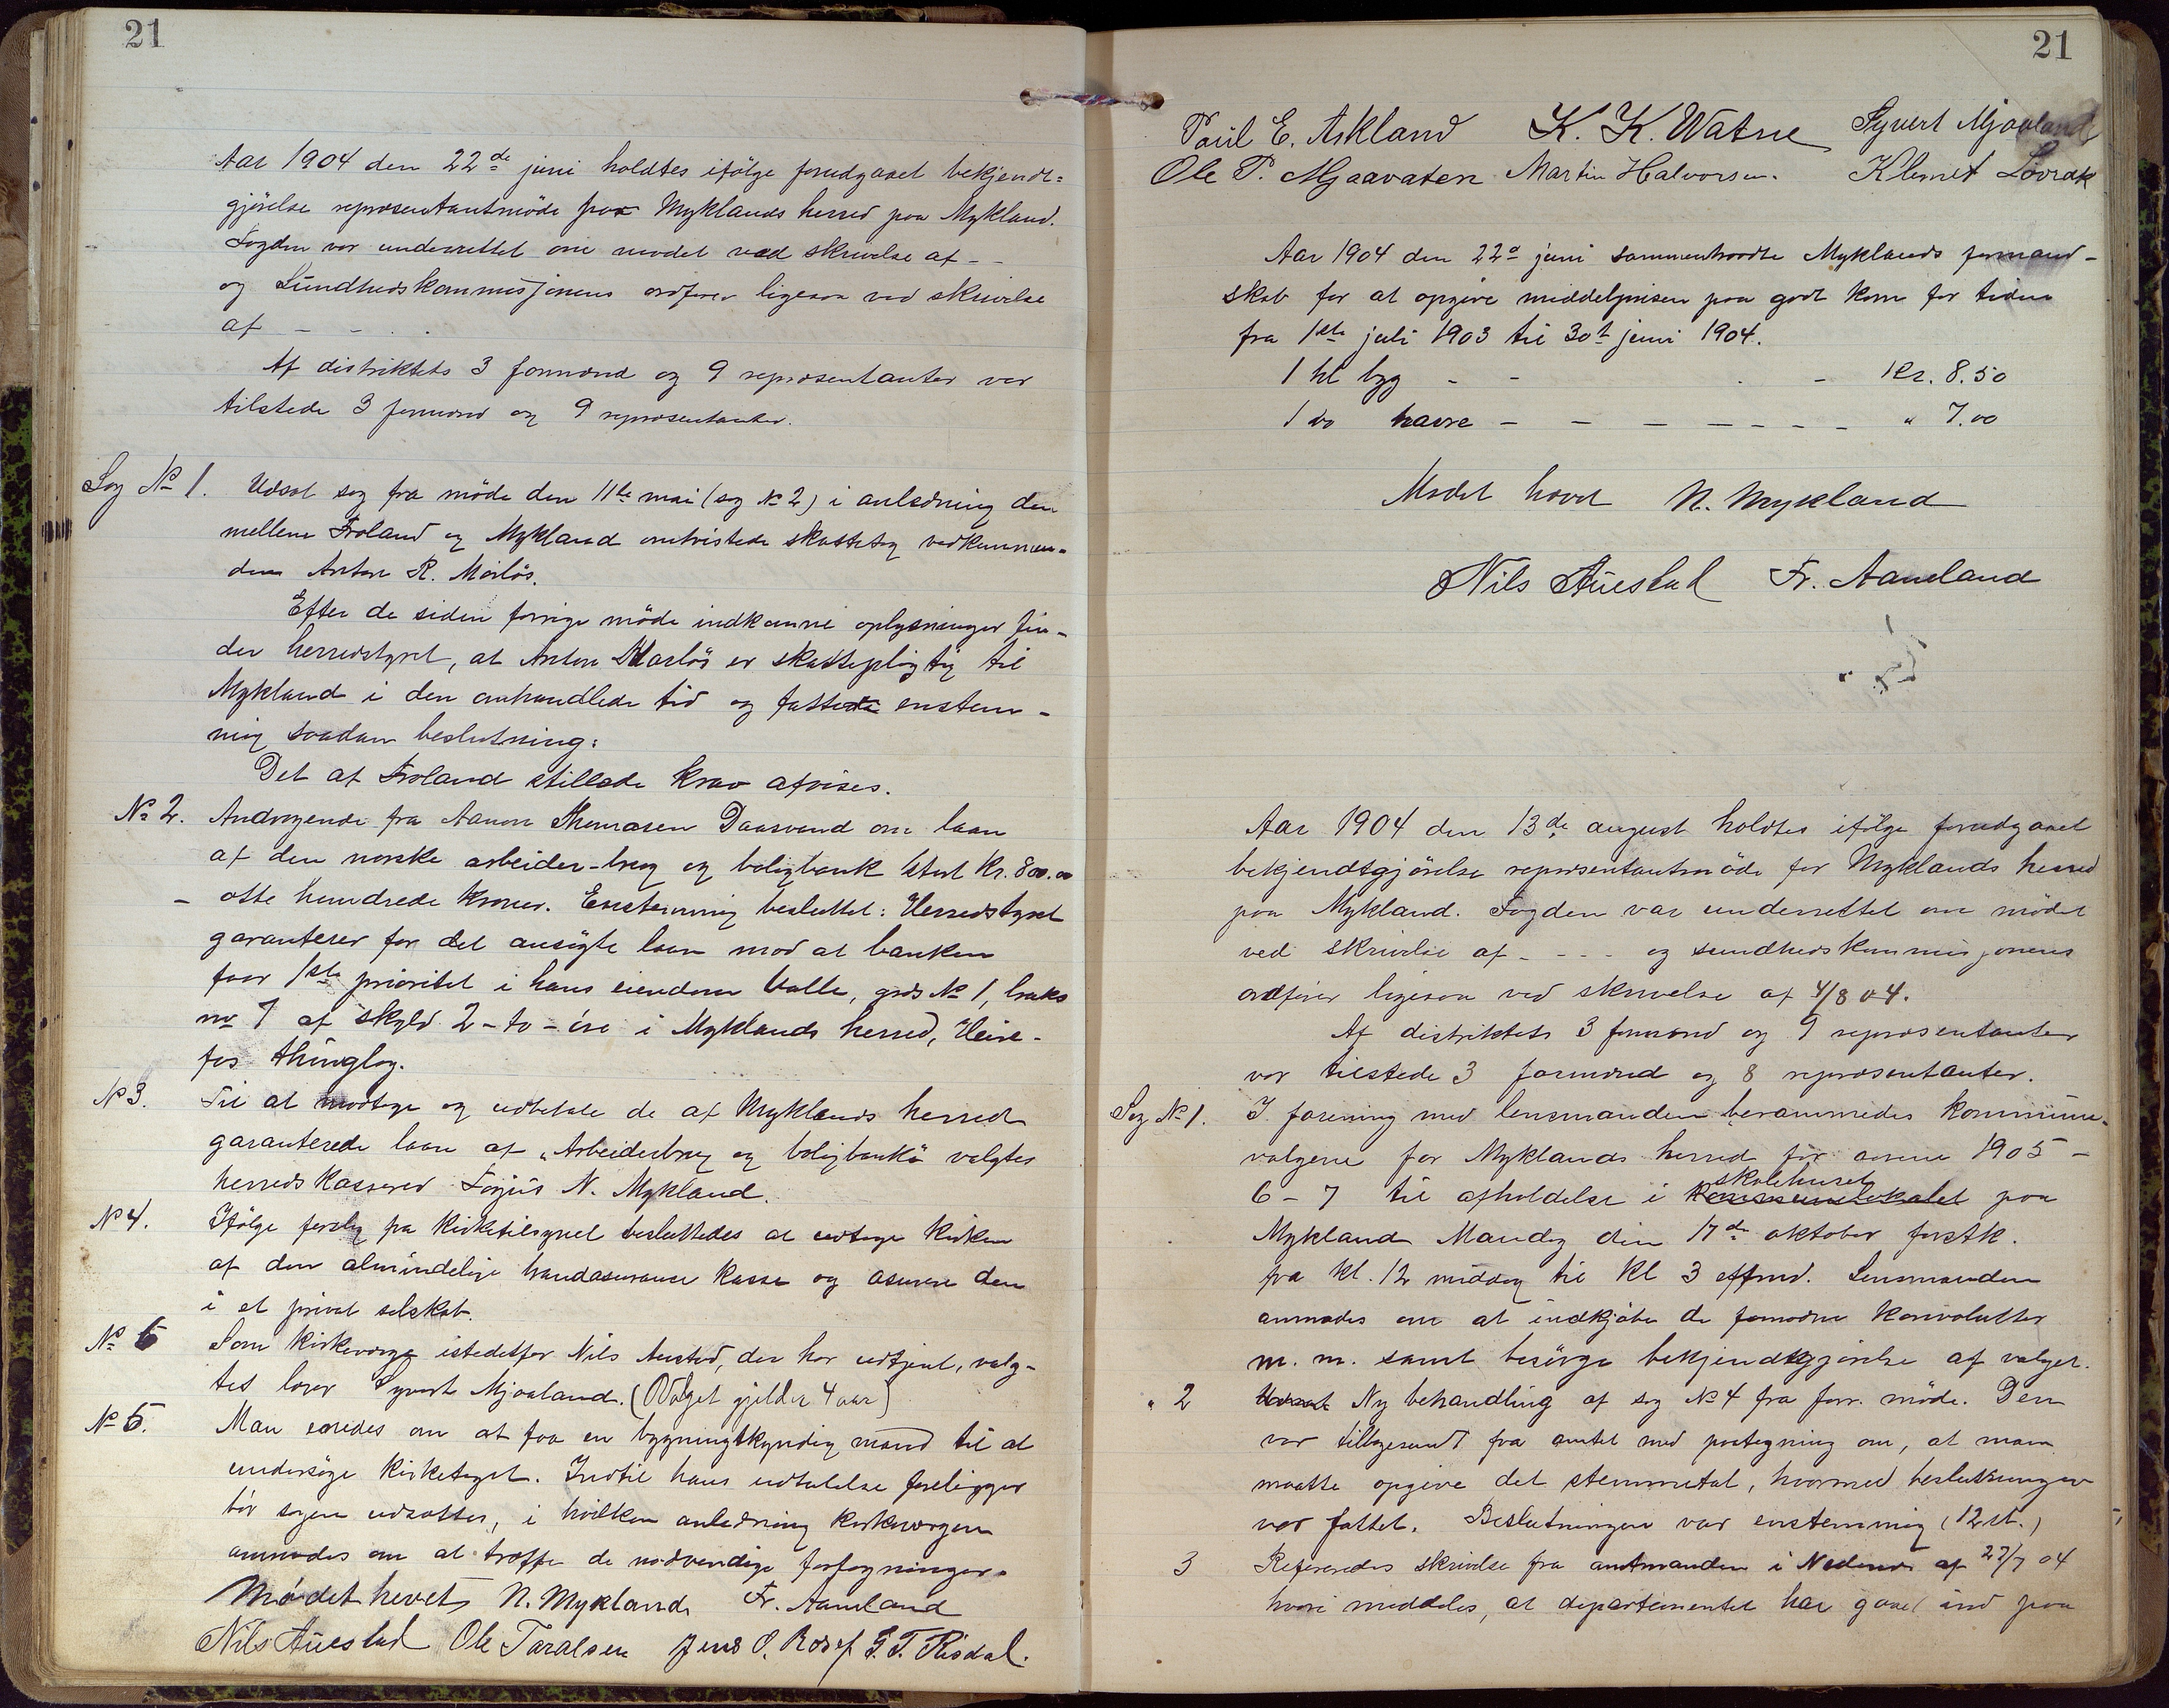 21
Aar 1904 den 22de juni holdtes ifølge forudgaaet bekjendt=
gjørelse repræsentantmøde for Myklands herred paa Mykland.
Fogden var underrettet om mødet ved skrivelse af - -
og Sundhedskommisjonens ordfører ligesaa ved skrivelse
af - - .
Af distriktets 3 formænd og 9 repræsentanter var
tilstede 3 formænd og 9 repræsentanter.
Sag No 1. Udsat sag fra møde den 11te mai (sag No 2) i anledning den
mellem Froland og Mykland omtvistede skattesag vedkommen-
dem Anton R.
Efter de siden forrige møde indkomne oplysninger fin-
der herredstyret, at Anton er skattepligtig til
Mykland i den omhandlede tid og fattede enstem-
mig saadan beslutning:
Det af Froland stillede krav afvises.
No 2. Andragende fra Aanon Thomasen Daasvand om laan
af den norske arbeider-brug og boligbank stort Kr. 800.00
- otte hundrede kroner. Enstemmig besluttet: Herredstyret
garanterer for det ansøgte laan mod at banken
faar 1ste prioritet i hans eiendom Valle, grds No 1, bruks
no 7 af skyld 2 - to - øre i Myklands herred, Heire-
fos thinglag.
No 3. Til at modtage og udbetale de af Myklands herred
garanterede laan af "Arbeiderbrug og boligbank" valgtes
herredskasserer Torjus N. Mykland.
No 4. Ifølge forslag fra kirketilsynet besluttedes at udtage kirken
af den almindelige brandassurance kasse og asurere den
i et privat selskab.
No 5 Som kirkeværge istedetfor Nils Austad, der har udtjent, valg-
tes lærer Syvert Mjaaland. (Valget gjelder 4 aar)
No 6. Man enedes om at faa en bygningskyndig mand til at
undersøge kirketaget. Indtil hans udtalelse foreligger
bør sagen udsættes, i hvilken anledning kirkeværgen
anmodes om at træffe de nødvendige forføgninger.
Mødet hevet N. Mykland Fr. Aamland
Nils Austad Ole Taralsen Jens O. Rosef G. T. Risdal.
21
Paul E. Askland K. K. Watne Syvert Mjaaland
Ole P. Mjaavaten Martin Halvorsen. Klemet Løvrak
Aar 1904 den 22d juni sammentraadte Myklands formand-
skab for at opgive middelprisen paa godt korn for tiden
fra 1ste juli 1903 til 30t juni 1904.
1 hl byg - - - - Kr. 8.50
1 do havre - - - - - - - " 7.00
Mødet hævet N. Mykland
Nils Austad Fr. Aamland
Aar 1904 den 13de august holdtes ifølge forudgaaet
bekjendtgjørelse repræsentantmøde for Myklands herred
paa Mykland. Fogden var underrettet om mødet
ved skrivelse af - - - - og sundhedskommisjonens
ordfører ligesaa ved skrivelse af 4/8 04.
Af distriktets 3 formænd og 9 repræsentanter
var tilstede 3 formænd og 8 repræsentanter.
Sag No 1. I forening med lensmanden berammedes kommune-
valgene for Myklands herred for aarene 1905 -
6 - 7 til afholdelse i skolehuset paa
Mykland Mandag den 17de oktober førstk.
fra kl. 12 middag til kl 3 eftmd. Lensmanden
anmodes om at indkjøbe de fornødne konvolutter
m. m. samt besørge bekjendtgjørelse af valget.
" 2 Ny behandling af sag No 4 fra forr. møde. Den
var tilbagesendt fra amtet med paategning om, at man
maatte opgive det stemmetal, hvormed beslutningen
var fattet. Beslutningen var enstemmig (12 st.)
3 Refereredes skrivelse fra amtmanden i Nedenes af 27/7 04
hvori meddeles, at departementet har gaaet ind paa